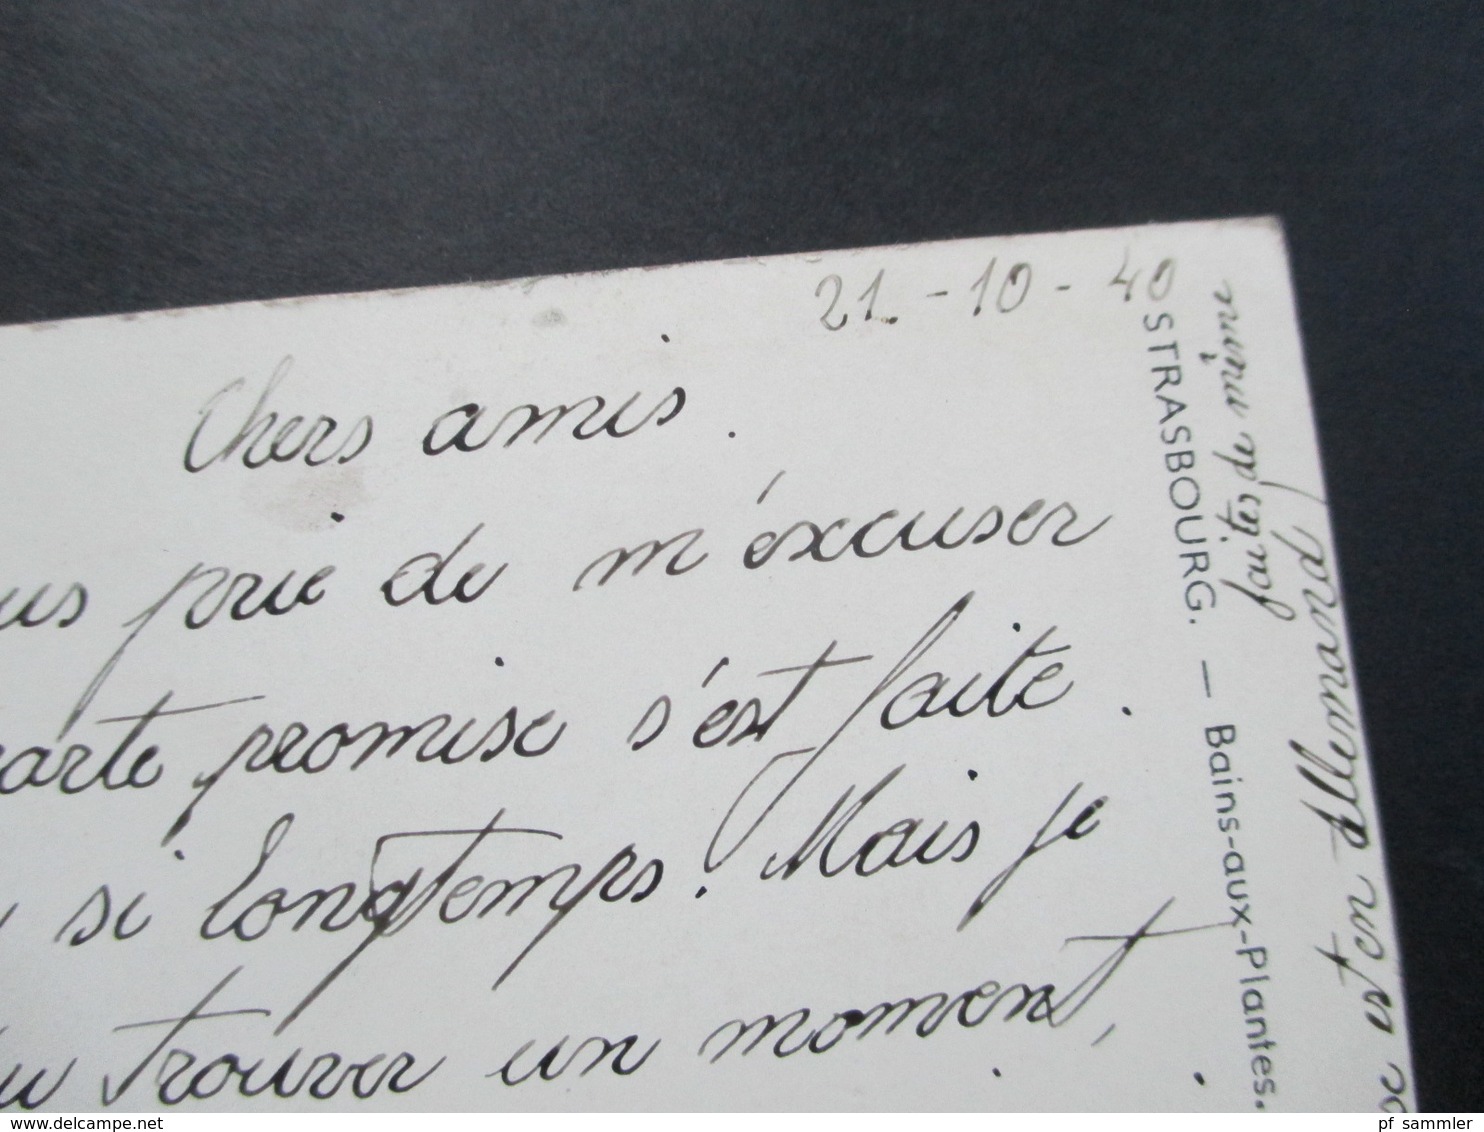 21. - 10 - 40
Chers amis.
prie de m'éxcuser
carte promise s'est faite.
si longtemps. Mais je
trouver un moment,
STRASBOURG. — Bains-aux-Plantes.
fautes de
est en Allemand
www.delcampe.net
pf_sammler